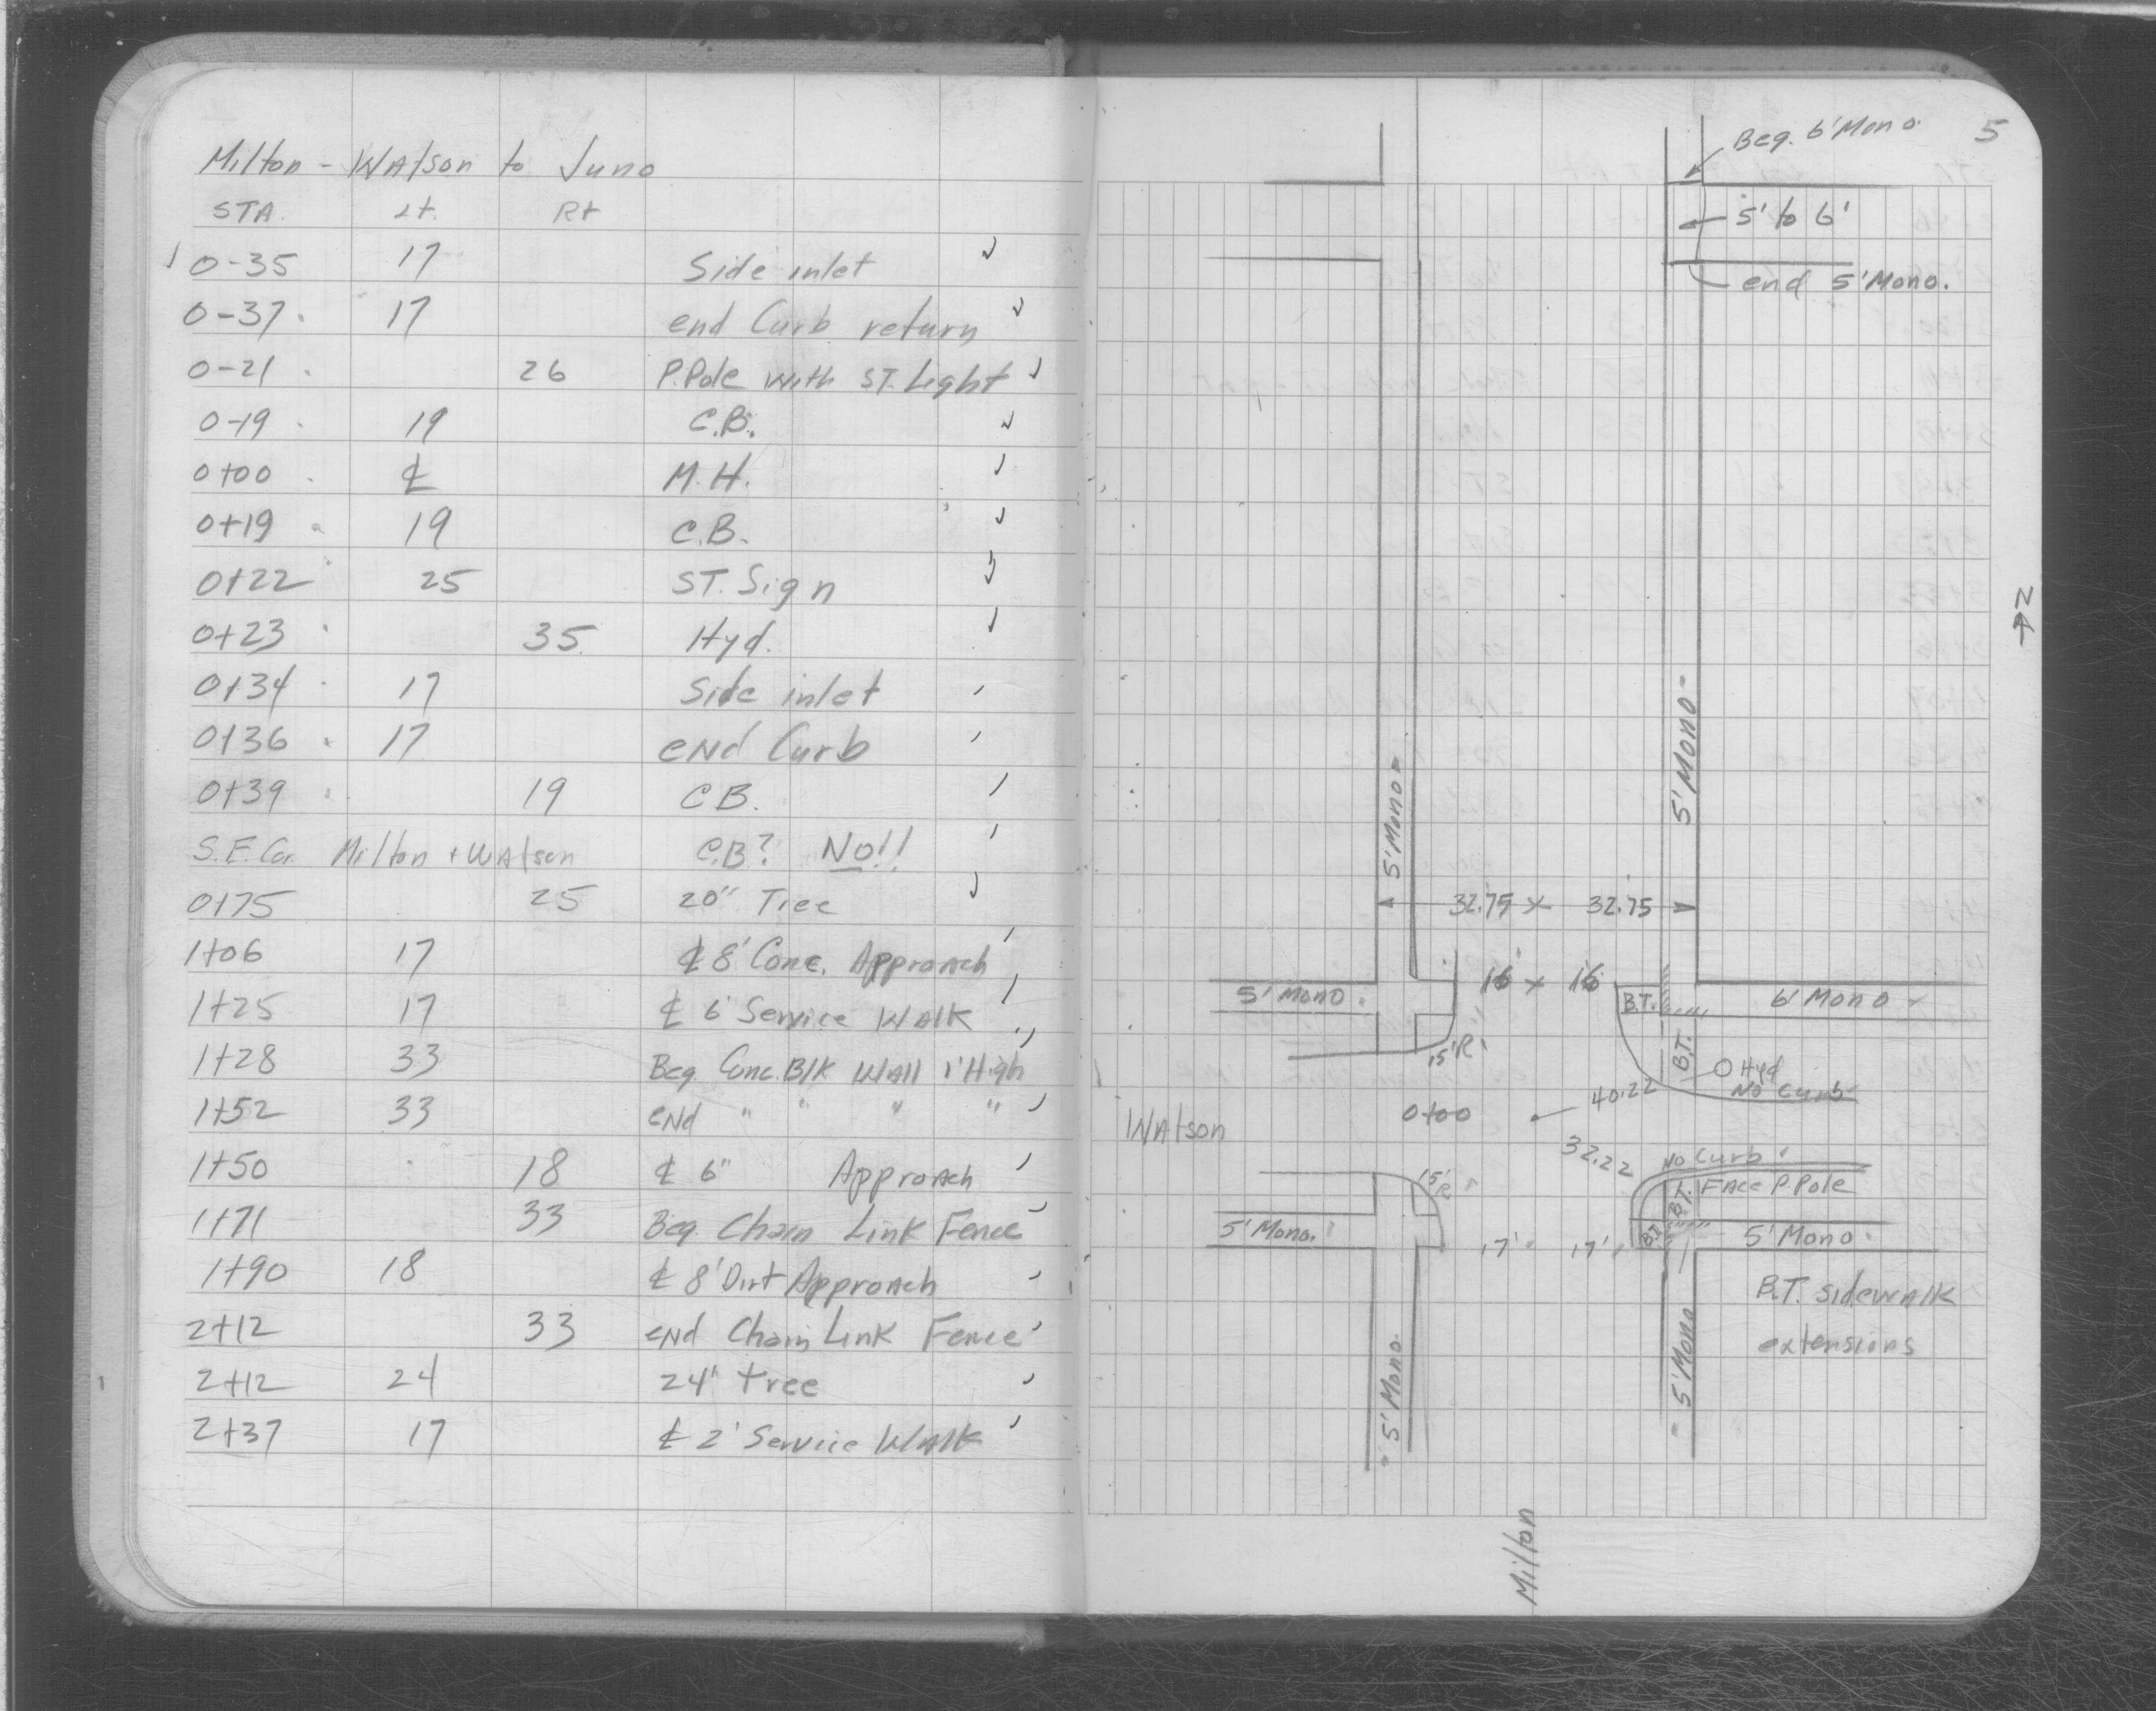 Milton - Watson to Juno
STA. Lt. Rt
0-35 17 Side inlet
0-37 17 end Curb return
0-21 26 P.Pole with ST. Light
0-19 19 C.B.
0+00 ℄ M.H.
0+19 19 C.B.
0+22 25 ST. Sign
0+23 35 Hyd.
0+34 17 Side inlet
0+36 17 end Curb
0+39 19 CB.
S.E. Cor. Milton + Watson C.B? NO!!
0+75 25 20" Tree
1+06 17 ℄ 8' Conc. Approach
1+25 17 ℄ 6' Service Walk
1+28 33 Beg. Conc. Blk Wall 1' High
1+52 33 end " " " "
1+50 18 ℄ 6" Approach
1+71 33 Beg. Chain Link Fence
1+90 18 ℄ 8' Dirt Approach
2+12 33 end Chain Link Fence
2+12 24 24" tree
2+37 17 ℄ 2' Service Walk
5
Beg. 6' Mono.
5' to 6'
end 5' Mono.
5' Mono
5' Mono
32.75 x 32.75
16 x 16
5' Mono.
B.T.
6' Mono
15'R
B.T.
Hyd
No Curb
40.22
Watson
0+00
32.22
No Curb
15'R
B.T.
Face P.Pole
5' Mono.
17' 17'
B.T.
5' Mono
B.T. sidewalk
extensions
5' Mono.
5' Mono
Milton